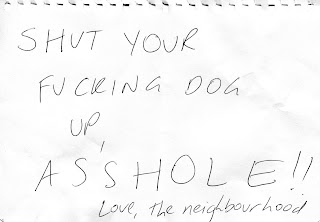 SHUT YOUR
FUCKING DOG
UP,
ASSHOLE!!
Love, the neighbourhood